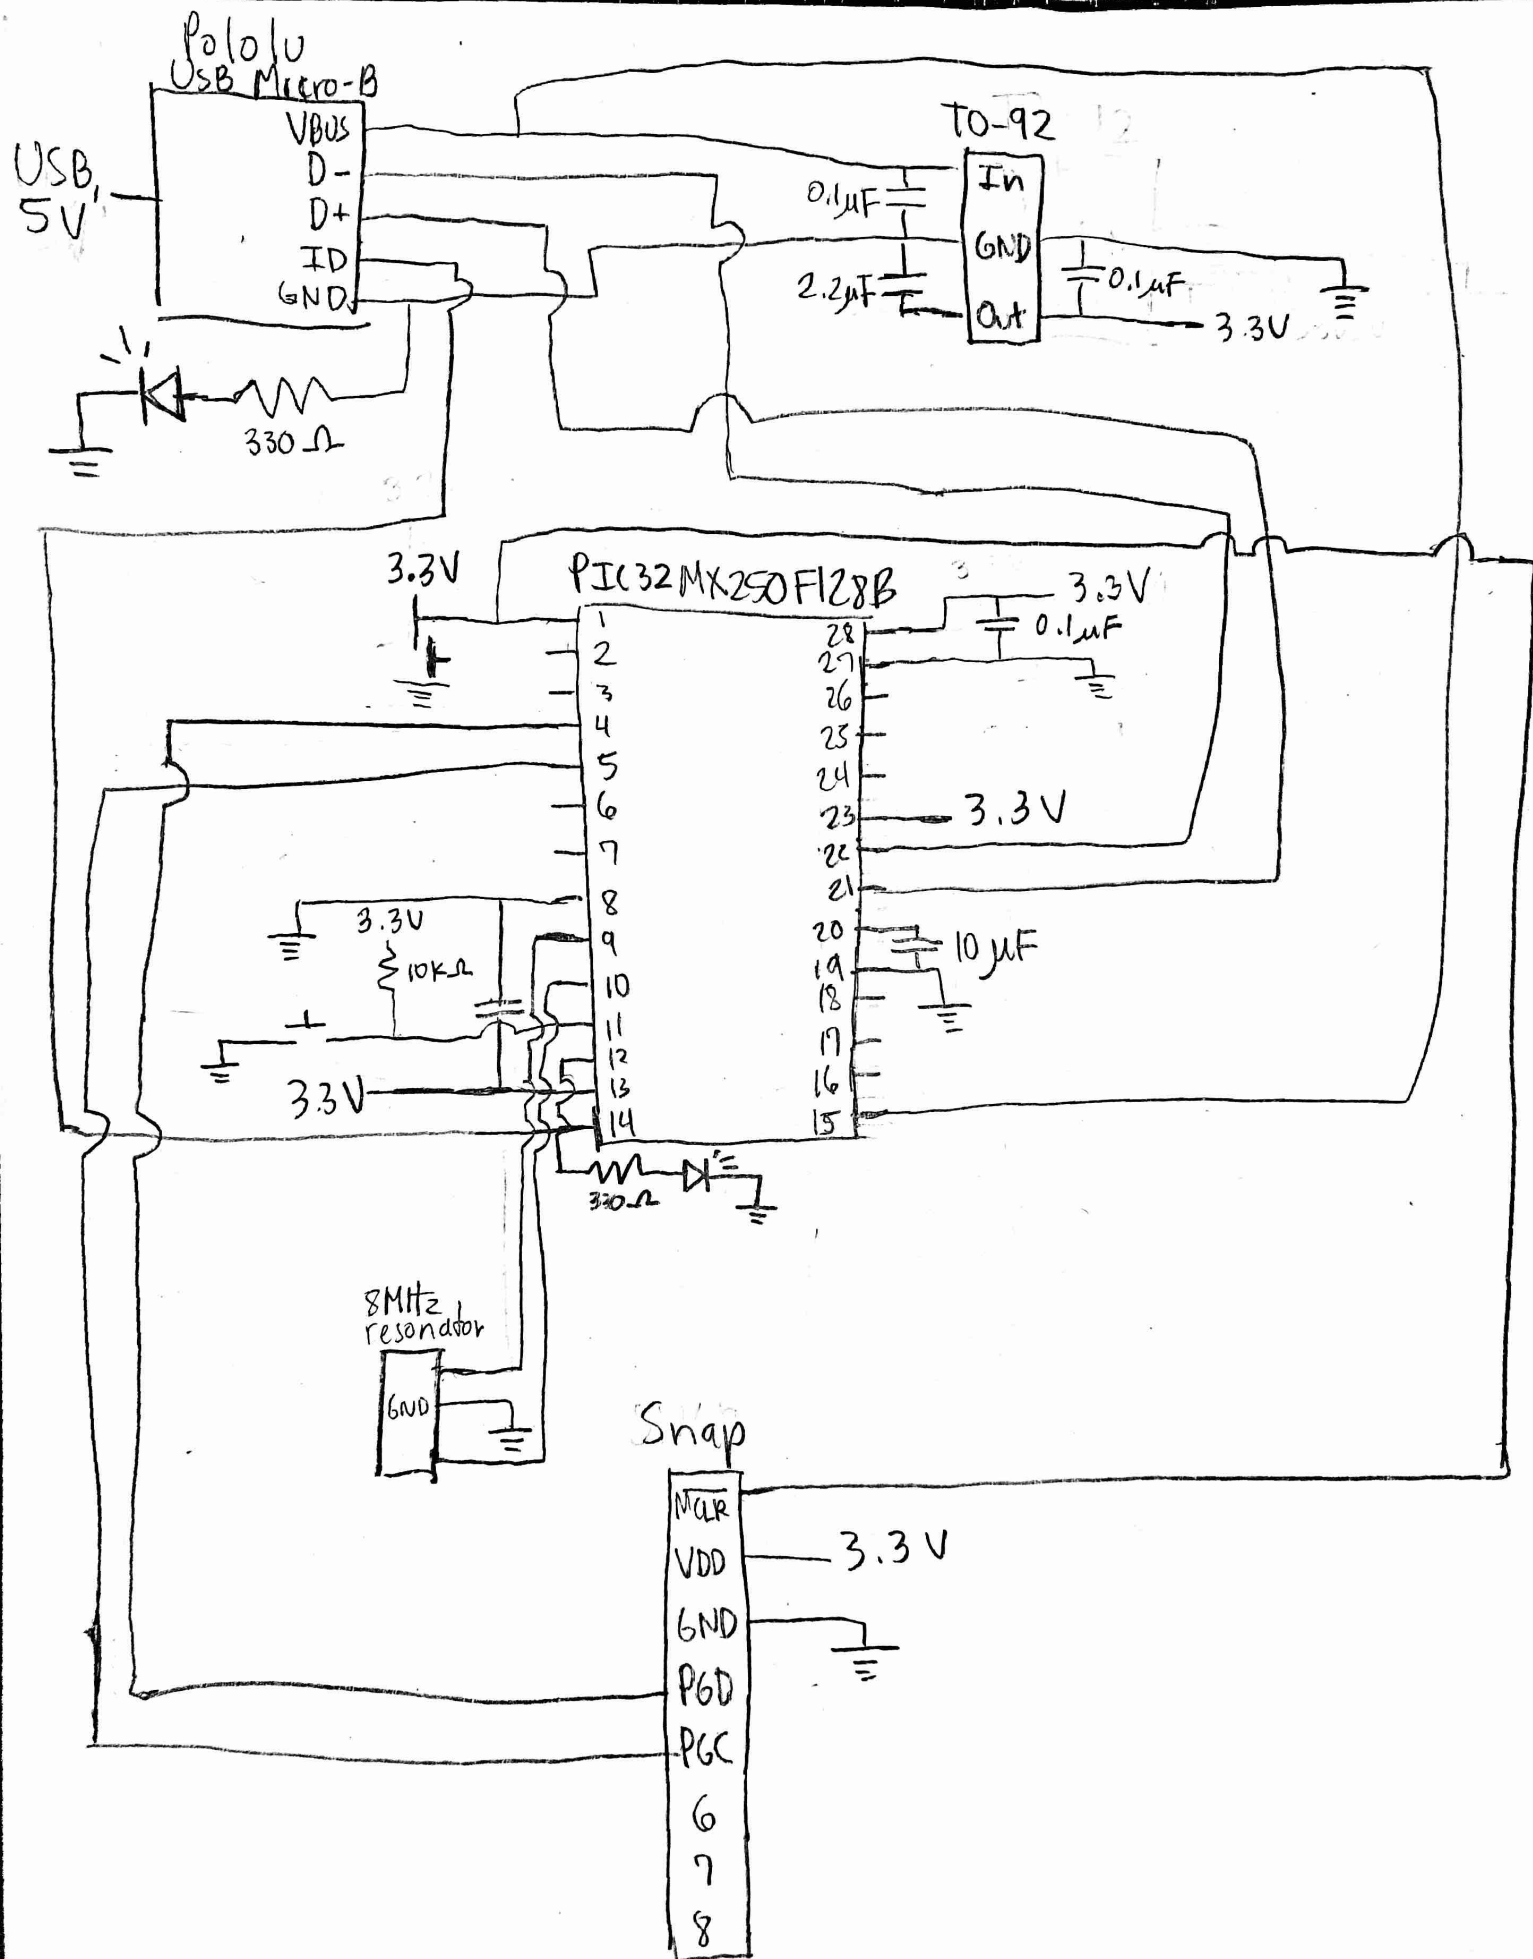 Pololu
USB Micro-B
USB,
5V
VBUS
D-
D+
ID
GND
TO-92
In
GND
Out
0.1µF
2.2µF
0.1µF
3.3V
330Ω
3.3V
PIC32MX250F128B
1
2
3
4
5
6
7
8
9
10
11
12
13
14
28
27
26
25
24
23
22
21
20
19
18
17
16
15
3.3V
0.1µF
3.3V
10µF
3.3V
10KΩ
3.3V
330Ω
8MHz
resonator
GND
Snap
MCLR
VDD
GND
PGD
PGC
6
7
8
3.3V